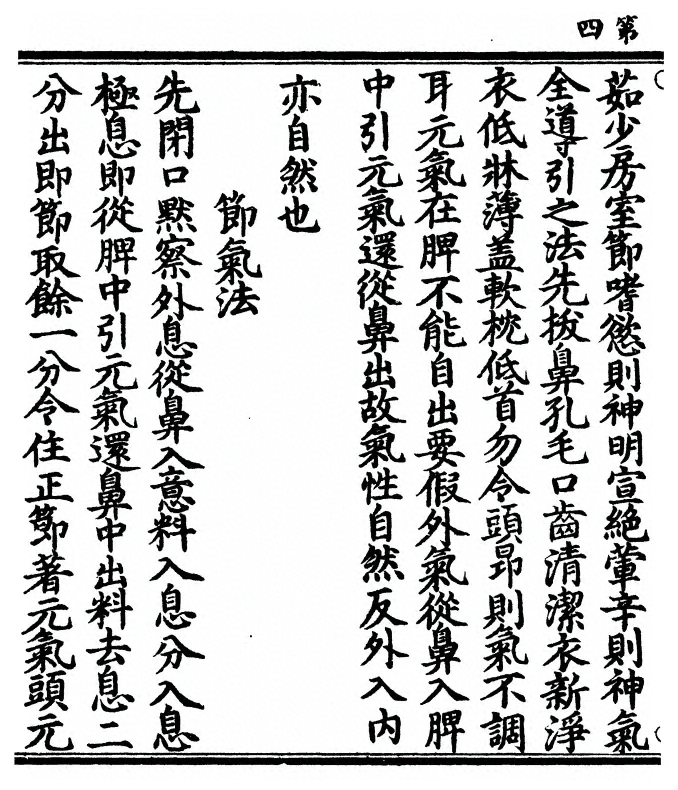 第四
茹少房室節嗜慾則神明宣絕葷辛則神氣
全導引之法先拔鼻孔毛口齒清潔衣新淨
衣低牀薄盖軟枕低首勿令頭昂則氣不調
耳元氣在脾不能自出要假外氣從鼻入脾
中引元氣還從鼻出故氣性自然反外入內
亦自然也
節氣法
先閉口默察外息從鼻入意料入息分入息
極息即從脾中引元氣還鼻中出料去息二
分出即節取餘一分令住正節著元氣頭元